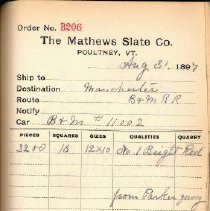 Order No. B206
The Mathews Slate Co.
POULTNEY, VT.
Aug 31, 1897
Ship to
Destination Manchester
Route B & M R R
Notify
Car B & M # 11002
PIECES SQUARES SIZES QUALITIES QUARRY
3200 16 12x10 No. 1 Bright Red
from Parker